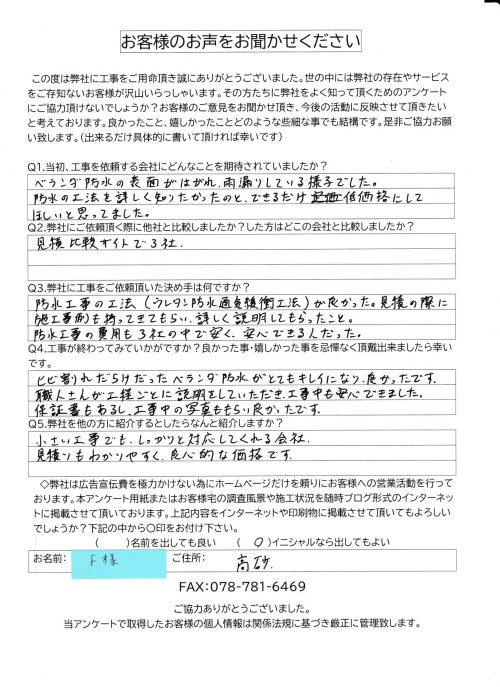 お客様のお声をお聞かせください
この度は弊社に工事をご用命頂き誠にありがとうございました。世の中には弊社の存在やサービス
をご存知ないお客様が沢山いらっしゃいます。その方たちに弊社をよく知って頂くためのアンケート
にご協力頂けないでしょうか？お客様のご意見をお聞かせ頂き、今後の活動に反映させて頂きたい
と考えております。良かったこと、嬉しかったことどのような些細な事でも結構です。是非ご協力お願
い致します。（出来るだけ具体的に書いて頂ければ幸いです）
Q1.当初、工事を依頼する会社にどんなことを期待されていましたか？
ベランダ防水の表面がはがれ、雨漏りしている様子でした。
防水の工法を詳しく知りたかったのと、できるだけ低価格にして
ほしいと思ってました。
Q2.弊社にご依頼頂く際に他社と比較しましたか？した方はどこの会社と比較しましたか？
見積比較サイトで3社.
Q3.弊社に工事をご依頼頂いた決め手は何ですか？
防水工事の工法（ウレタン防水通気緩衝工法）が良かった。見積の際に
施工事例も持ってきてもらい、詳しく説明してもらったこと。
防水工事の費用も3社の中で安く、安心できる人だった。
Q4.工事が終わってみていかがですか？良かった事・嬉しかった事を忌憚なく頂戴出来ましたら幸い
です。
ヒビ割れだらけだったベランダ防水がとてもキレイになり、良かったです.
職人さんが工程ごとに説明をしていただき、工事中も安心できました。
保証書もあるし、工事中の写真ももらい良かったです.
Q5.弊社を他の方に紹介するとしたらなんと紹介しますか？
小さい工事でも、しっかりと対応してくれる会社.
見積りもわかりやすく、良心的な価格です.
◇弊社は広告宣伝費を極力かけない為にホームページだけを頼りにお客様への営業活動を行って
おります。本アンケート用紙またはお客様宅の調査風景や施工状況を随時ブログ形式のインターネッ
トに掲載させて頂いております。上記内容をインターネットや印刷物に掲載させて頂いてもよろしい
でしょうか？下記の中から〇印をお付け下さい。
（　　）名前を出しても良い　（　〇　）イニシャルなら出してもよい
お名前：　F様　ご住所：　高砂.
FAX:078-781-6469
ご協力ありがとうございました。
当アンケートで取得したお客様の個人情報は関係法規に基づき厳正に管理致します。